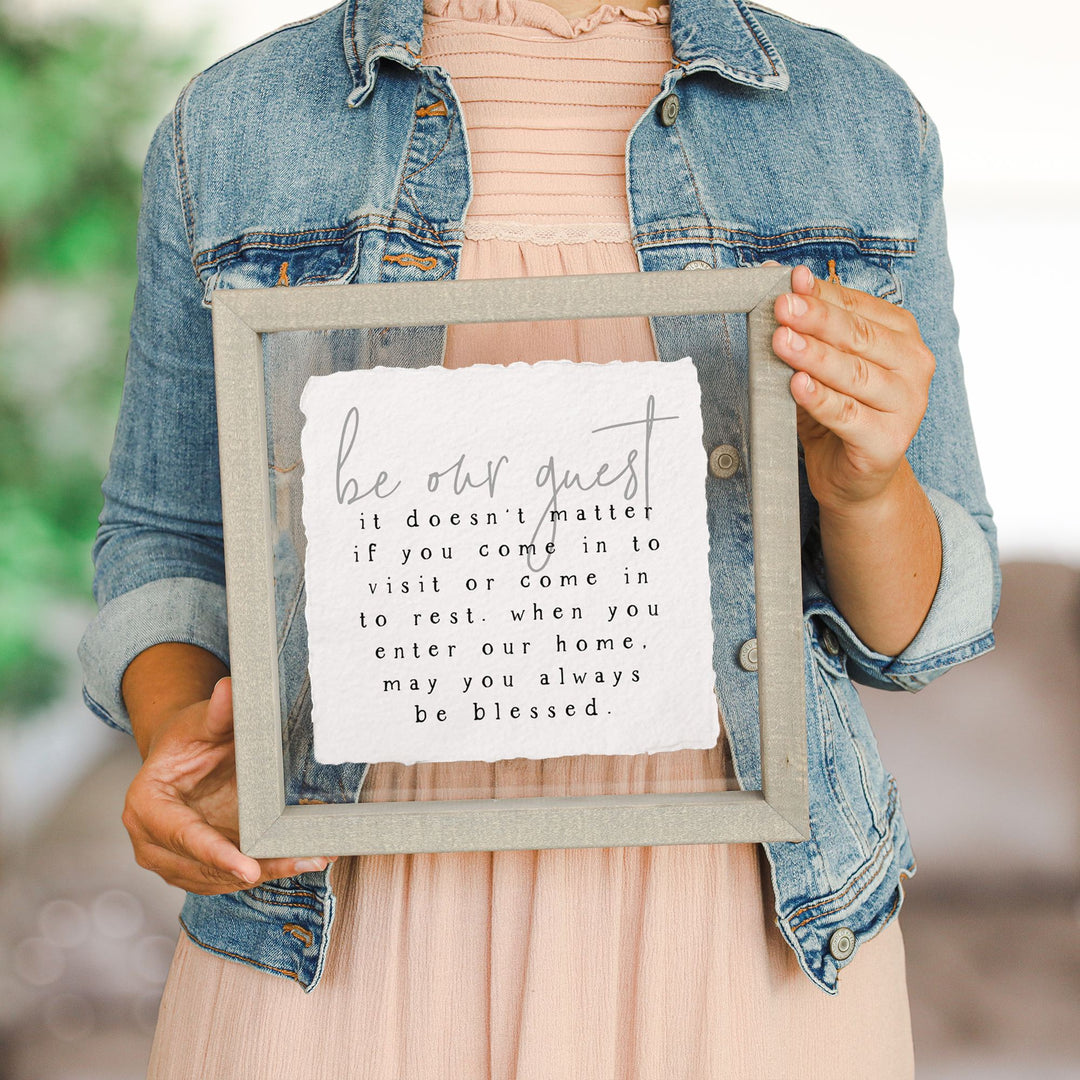 be our guest
it doesn't matter
if you come in to
visit or come in
to rest. when you
enter our home,
may you always
be blessed.